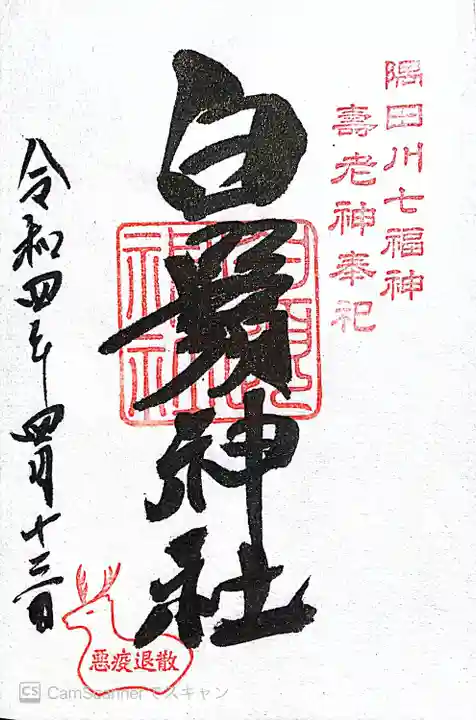 隅田川七福神
壽老神奉祀
白鬚神社
令和四年四月十三日
惡疫退散
CS CamScannerでスキャン